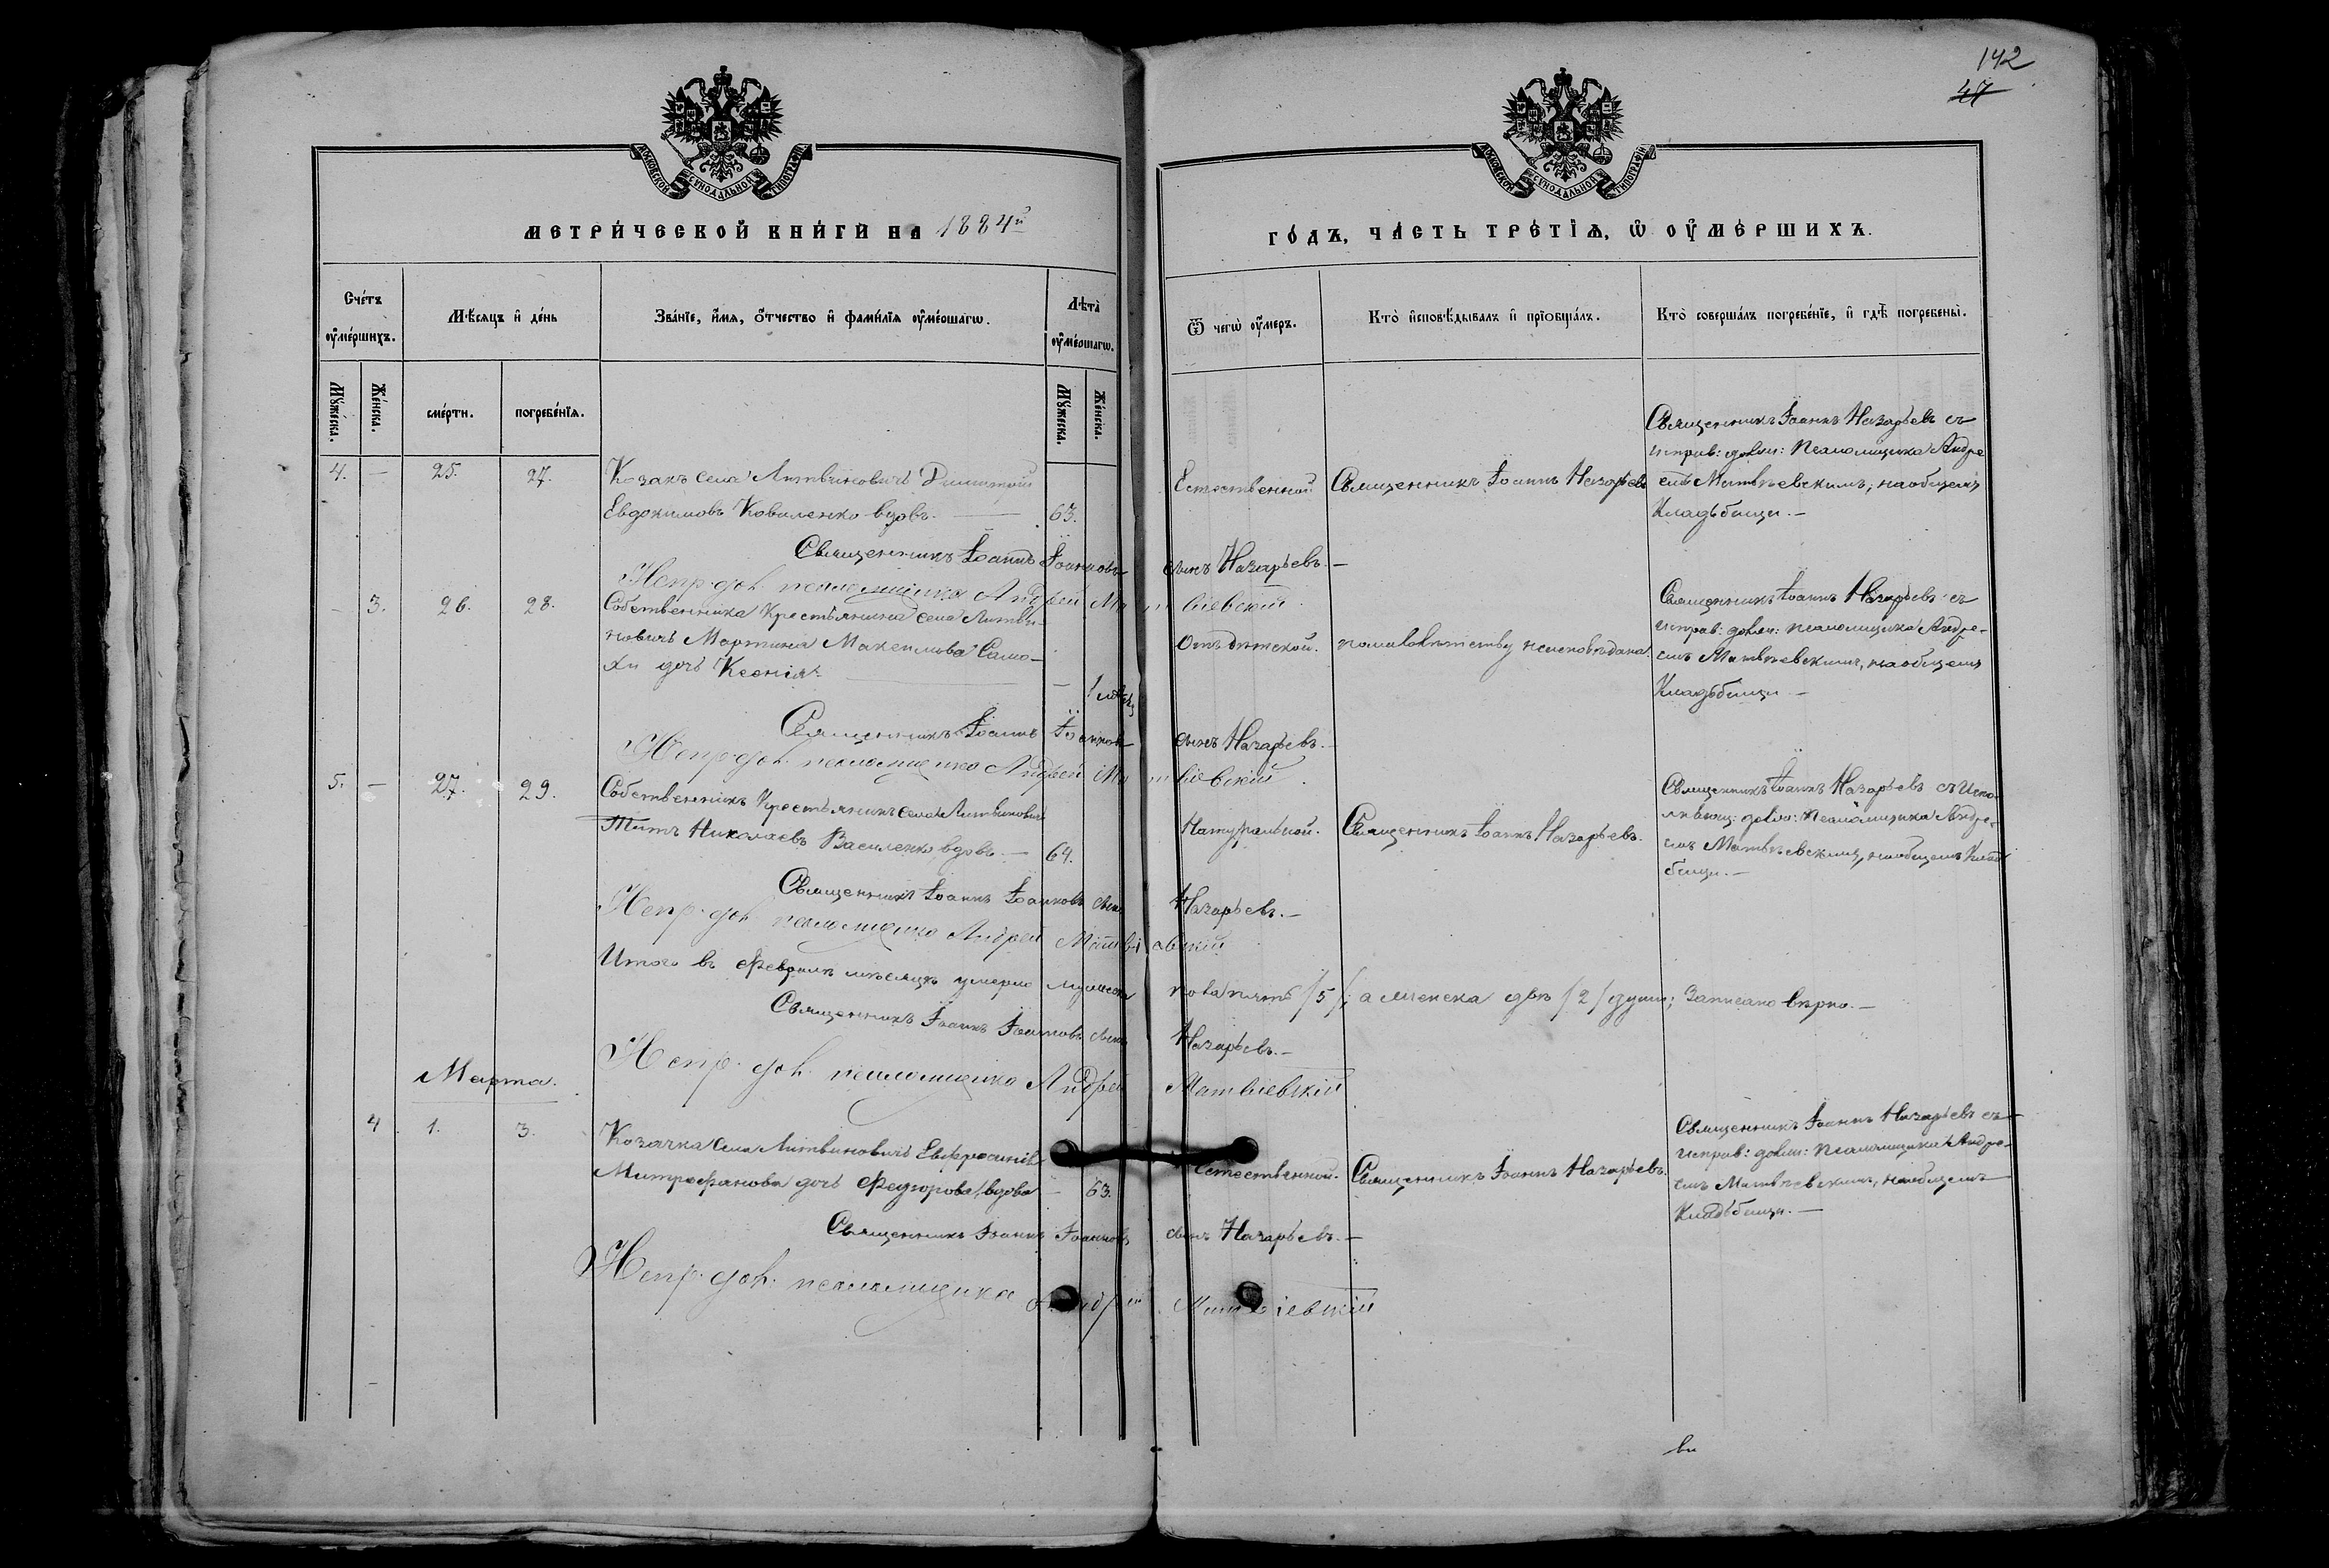 142
47
МОСКОВСКОЙ СѴНОДАЛЬНОЙ ТИПОГРАФІИ
МОСКОВСКОЙ СѴНОДАЛЬНОЙ ТИПОГРАФІИ
МЕТРИ́ЧЕСКОЙ КНИ́ГИ НА 1884й
ГО́ДЪ, ЧА́СТЬ ТРЕ́ТІѦ, Ѡ ОУМЕ́РШИХЪ.
Сче́тъ оуме́ршихъ.
Мѣ́сѧцъ и де́нь
Зва́нїе, и́мѧ, о́тчество и фами́лїѧ оуме́ршагѡ.
Лѣ́та оуме́ршагѡ.
Ѿ чегѡ̀ оу́меръ.
Кто̀ исповѣ́дывалъ и прїобща́лъ.
Кто̀ соверша́лъ погребе́нїе, и гдѣ̀ погребены̀.
Мꙋ́жеска.
Же́нска.
сме́рти.
погребе́нїѧ.
Мꙋ́жеска.
Же́нска.
4. — 25. 27.
Козакъ села Литвиновичъ Димитрій
Евдокимовъ Коваленко вдовъ. — 63.
Естественной
Священникъ Іоаннъ Назарьевъ
Священникъ Іоаннъ Назарьевъ съ
исправ: долж: Псаломщика Андре
емъ Матвѣевскимъ, на общемъ
Кладьбищи. —
Священникъ Іоаннъ Іоанновъ сынъ Назарьевъ. —
Испр. дол. псаломщика Андрей Матвіевскій.
— 3. 26. 28.
Собственника Крестьянина села Литви-
новичъ Мартина Максимова Само-
хи дочь Ксенія. — 1 мѣсяц
Отъ дѣтской.
помалолѣтству неисповѣдана.
Священникъ Іоаннъ Назарьевъ съ
исправ: долж: псаломщика Андре-
емъ Матвѣевскимъ, на общемъ
Кладьбищи —
Священникъ Іоаннъ Іоанновъ сынъ Назарьевъ. —
Испр. дол. псаломщика Андрей Матвіевскій.
5. — 27. 29.
Собственникъ Крестьянинъ села Литвиновичъ
Титъ Николаевъ Василенко вдовъ. — 64.
Натуральной.
Священникъ Іоаннъ Назарьевъ.
Священникъ Іоаннъ Назарьевъ съ Испо-
долж: Псаломщика Андре-
емъ Матвѣевскимъ, на общемъ Кладь
бищи. —
Священникъ Іоаннъ Іоанновъ сынъ Назарьевъ. —
Испр. дол. псаломщика Андрей Матвіевскій
Итого въ Февралѣ мѣсяцѣ умерло мужеска пола пять /5/, а женска двѣ /2/ души; Записано вѣрно. —
Священникъ Іоаннъ Іоанновъ сынъ Назарьевъ. —
Испр. дол. псаломщика Андрей Матвіевскій
Марта.
4 1. 3.
Козачка села Литвиновичъ Евфросинія
Митрофанова дочь Федорова, вдова — 63.
Естественной.
Священникъ Іоаннъ Назарьевъ.
Священникъ Іоаннъ Назарьевъ съ
исправ: долж: Псаломщика Андре-
емъ Матвѣевскимъ, на общемъ
Кладьбищи. —
Священникъ Іоаннъ Іоанновъ сынъ Назарьевъ. —
Испр. дол. псаломщика Андрей Матвіевскій